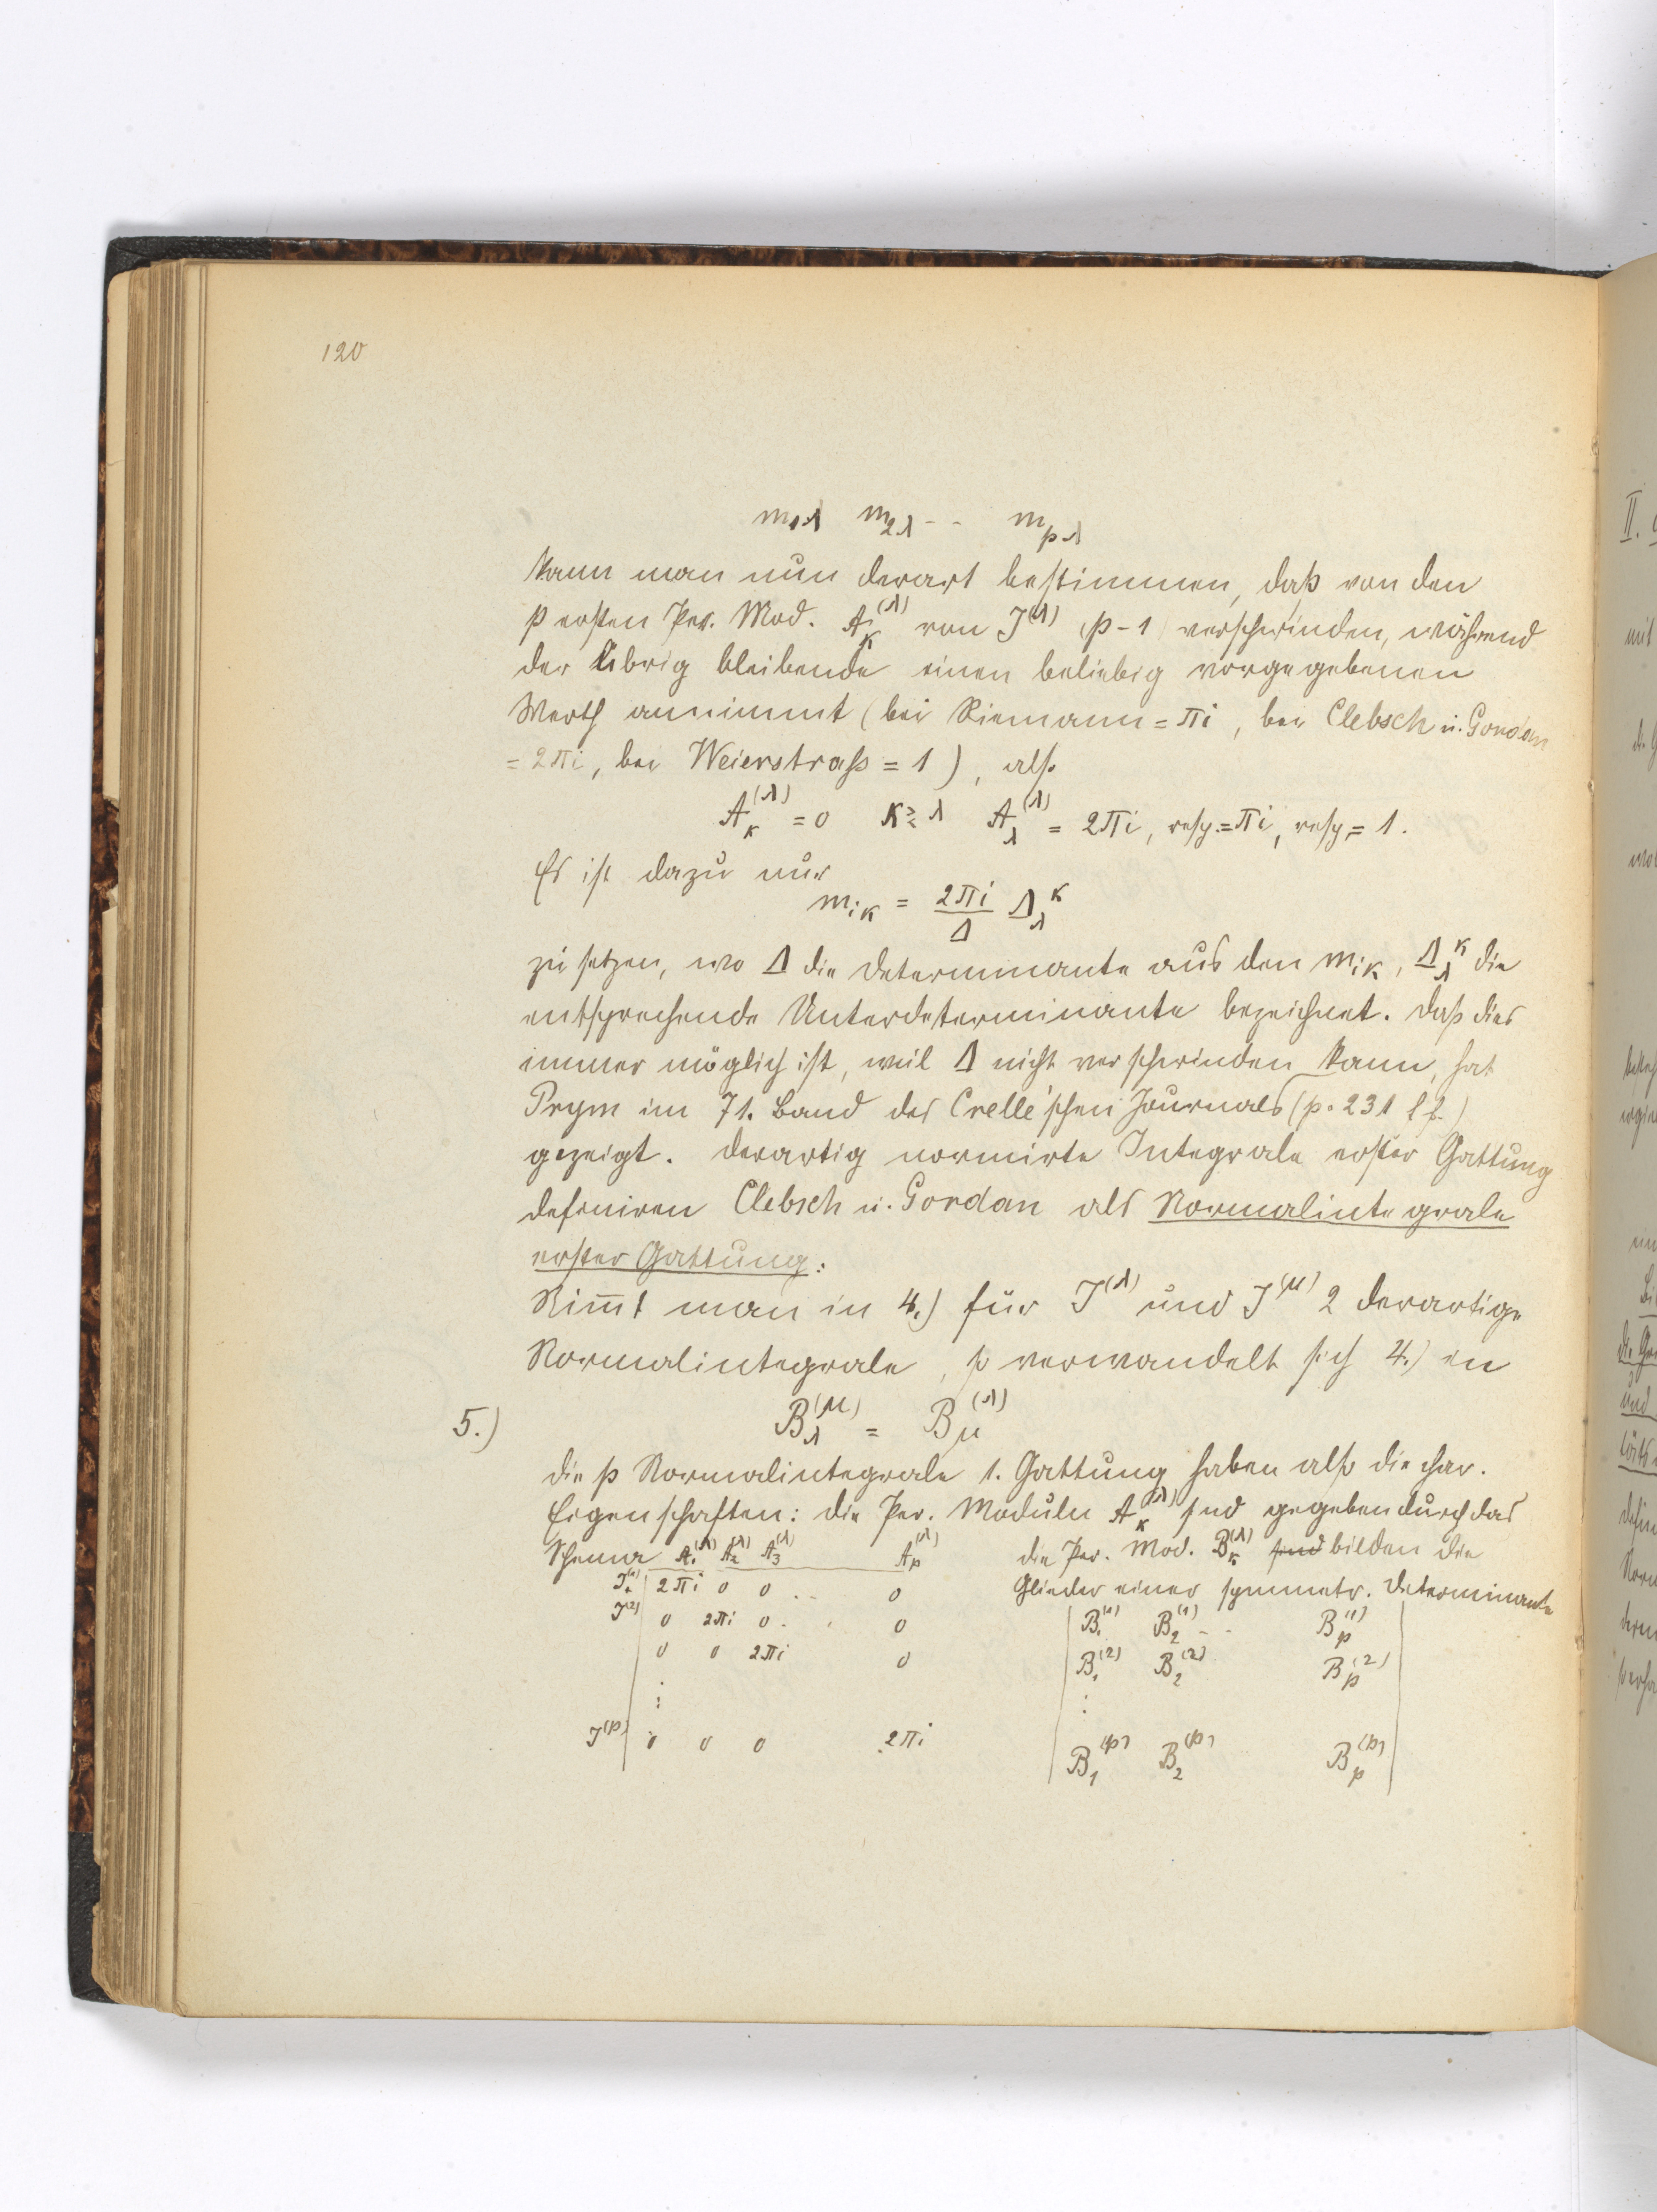 120
m₁λ m₂λ - - m_pλ
kann man nun derart bestimmen, daß von den
p ersten Per. Mod. A_κ^(λ) von J^(λ) (p-1) verschwinden, während
der übrig bleibende einen beliebig vorgegebenen
Werth annimmt (bei Riemann = πi, bei Clebsch u. Gordan
= 2πi, bei Weierstraß = 1), also
A_κ^(λ) = 0 κ ≷ λ A_λ^(λ) = 2πi, resp. = πi, resp. = 1.
Es ist dazu nur
m_iκ = 2πi/Δ Δ_λ^κ
zu setzen, wo Δ die Determinante aus den m_iκ, Δ_λ^κ die
entsprechende Unterdeterminante bezeichnet. Daß dies
immer möglich ist, weil Δ nicht verschwinden kann, hat
Prym im 71. Band des Crelle'schen Journals (p. 231 ff.)
gezeigt. Derartig normirte Integrale erster Gattung
definiren Clebsch u. Gordan als Normalintegrale
erster Gattung.
Nim̄t man in 4.) für J^(λ) und J^(μ) 2 derartige
Normalintegrale, so verwandelt sich 4.) in
5.) B_λ^(μ) = B_μ^(λ)
Die p Normalintegrale 1. Gattung haben also die char.
Eigenschaften: die Per. Moduln A_κ^(λ) sind gegeben durch das
Schema A₁^(λ) A₂^(λ) A₃^(λ) A_p^(λ) die Per. Mod. B_κ^(λ) sind bilden die
J^(1) 2πi 0 0 . . - 0 Glieder einer symmetr. Determinante
J^(2) 0 2πi 0 . . 0 B₁^(1) B₂^(1) - - B_p^(1)
0 0 2πi 0 B₁^(2) B₂^(2) B_p^(2)
⋮ ⋮
J^(p) 0 0 0 2πi B₁^(p) B₂^(p) B_p^(p)